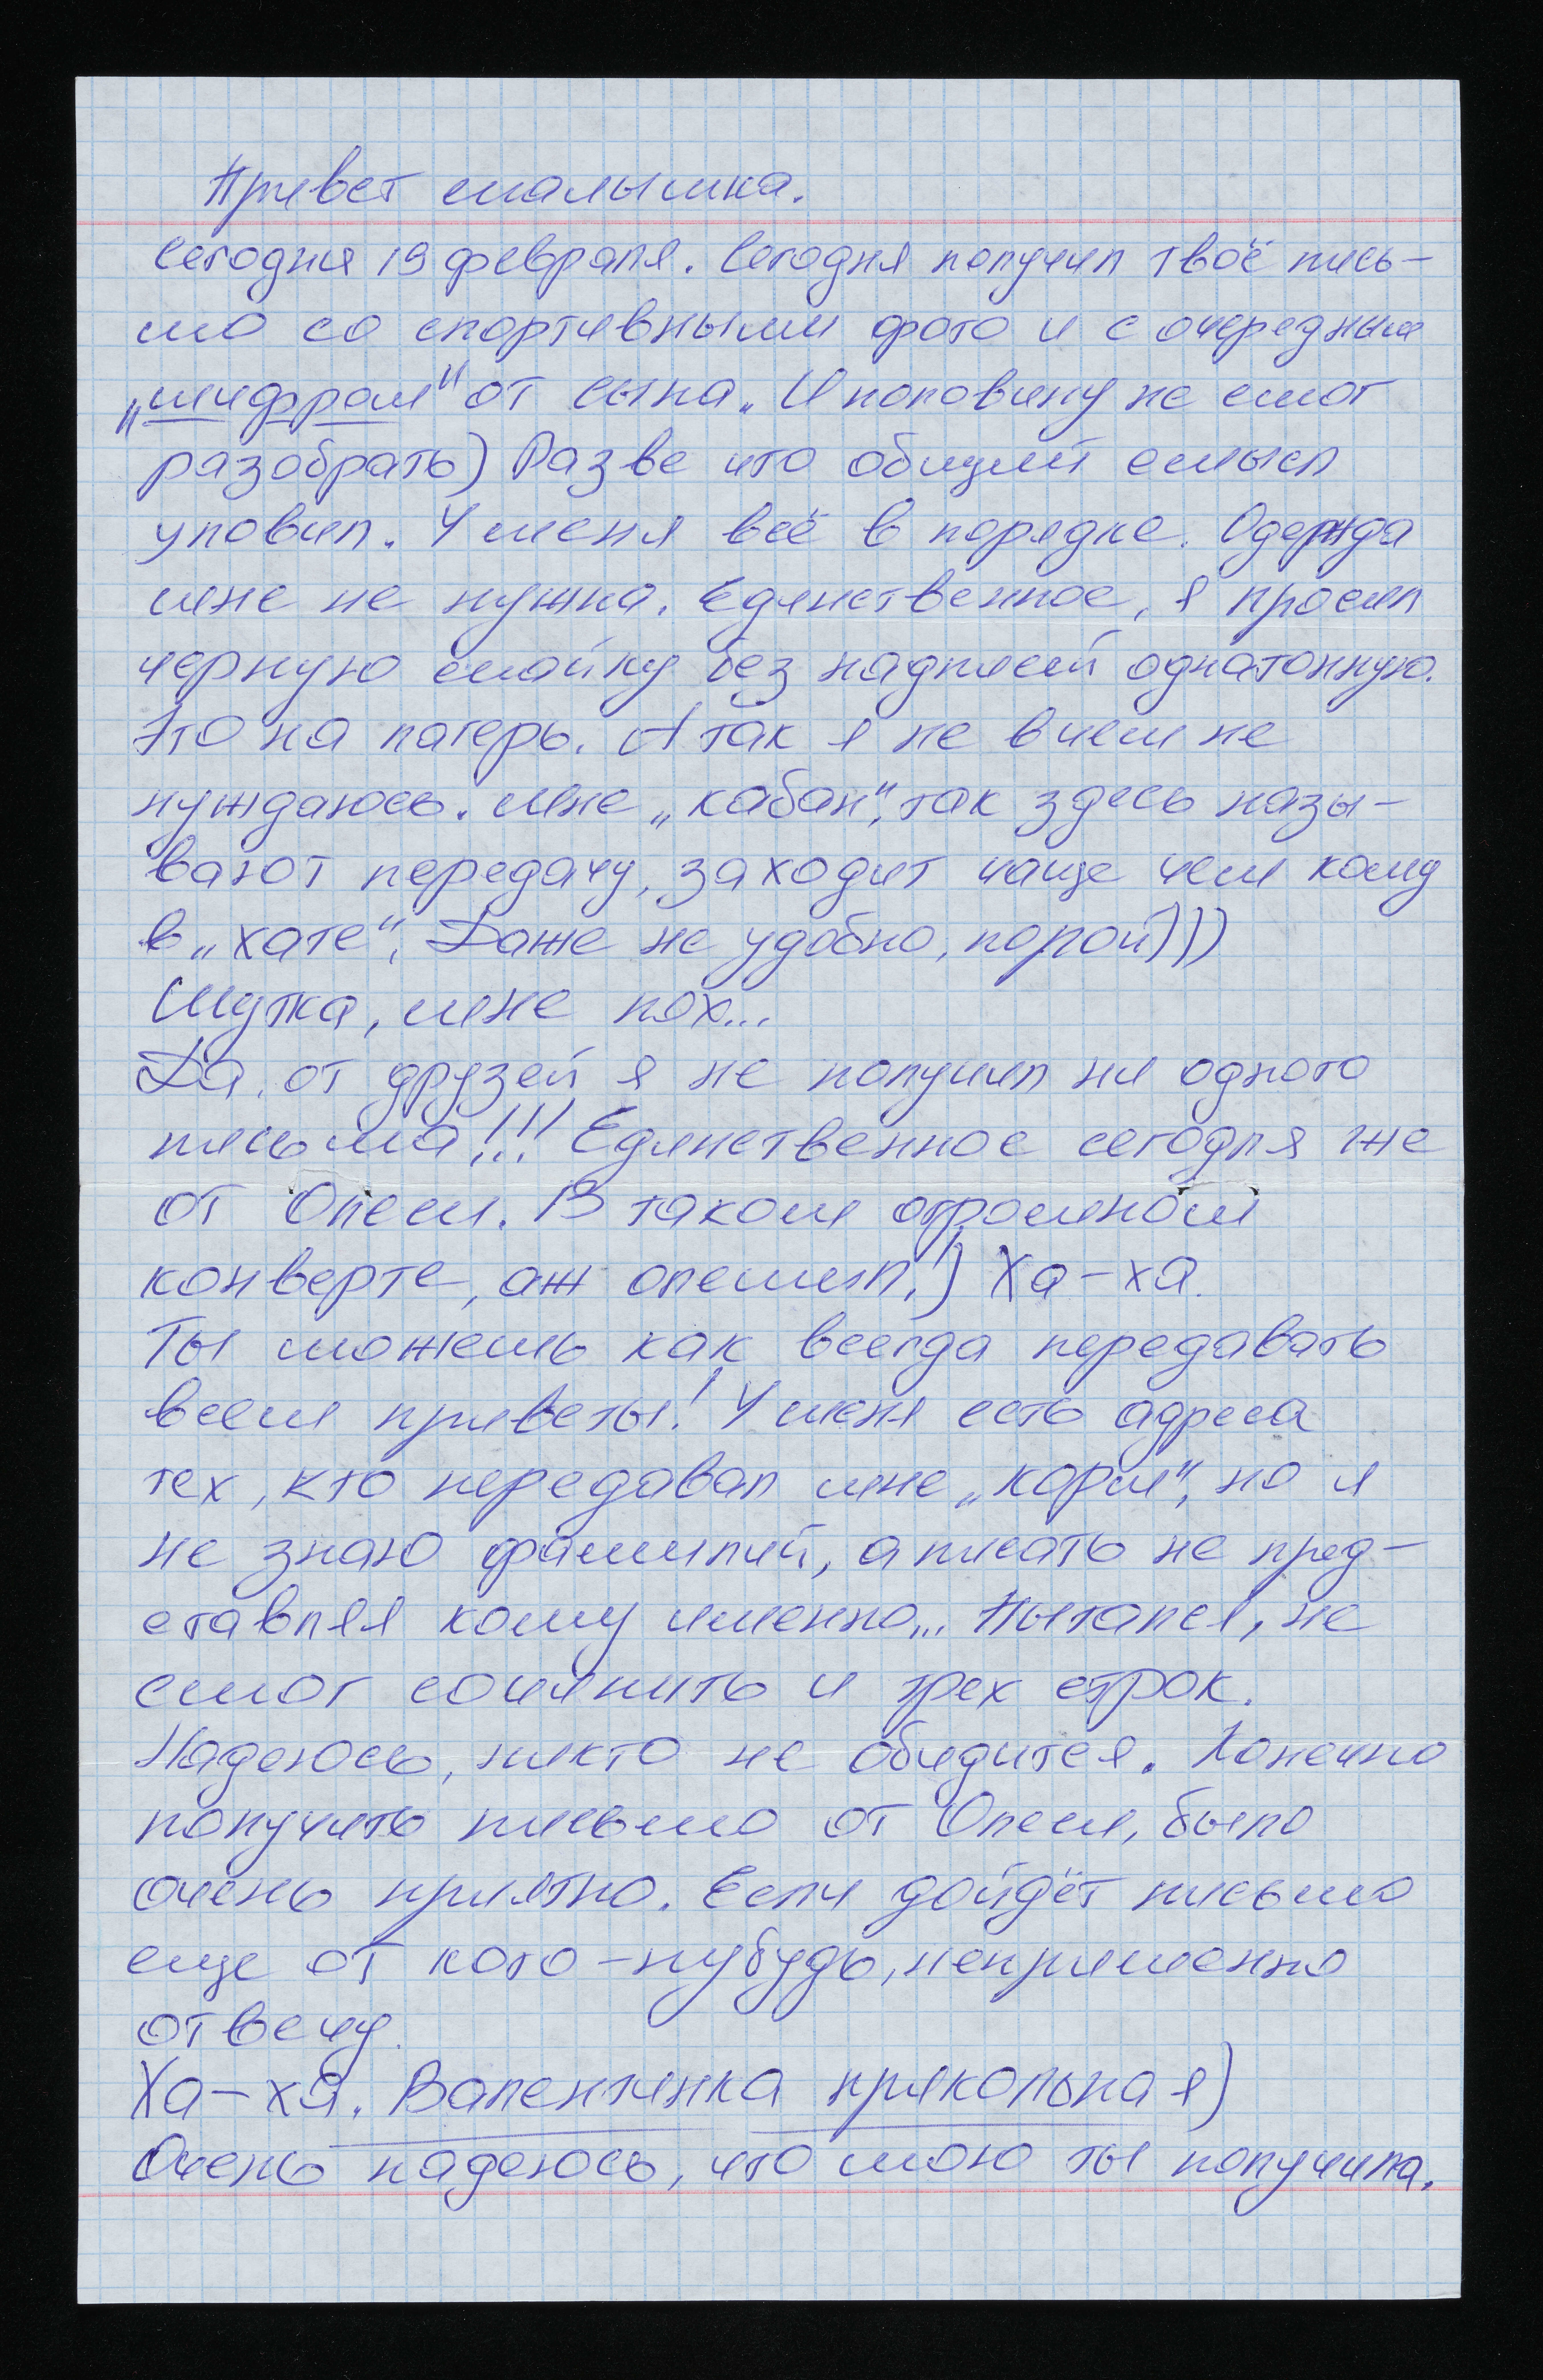 Привет малышка.
Сегодня 19 февраля. Сегодня получил твоё пись-
мо со спортивными фото и с очередным
„шифром" от сына. И половину не смог
разобрать) Разве что общий смысл
уловил. У меня всё в порядке. Одежда
мне не нужна. Единственное, я просил
черную майку без надписей однатонную.
Это на лагерь. А так я не в чем не
нуждаюсь. Мне „кабан", так здесь назы-
вают передачу, заходит чаще чем кому
в „хате". Даже не удобно, порой)))
Шутка, мне пох...
Да, от друзей я не получил ни одного
письма!!! Единственное сегодня же
от Олеси. В таком огромном
конверте, аж опешил!) Ха-ха.
Ты можешь как всегда передавать
всем приветы! У меня есть адреса
тех, кто передавал мне „корм", но я
не знаю фамилий, а писать не пред-
ставляя кому именно... Пытался, не
смог сочинить и трех строк.
Надеюсь, никто не обидится. Конечно
получить письмо от Олеси, было
очень приятно. Если дойдёт письмо
еще от кого-нубудь, неприменно
отвечу.
Ха-ха. Валентинка прикольная)
Очень надеюсь, что мою ты получила.